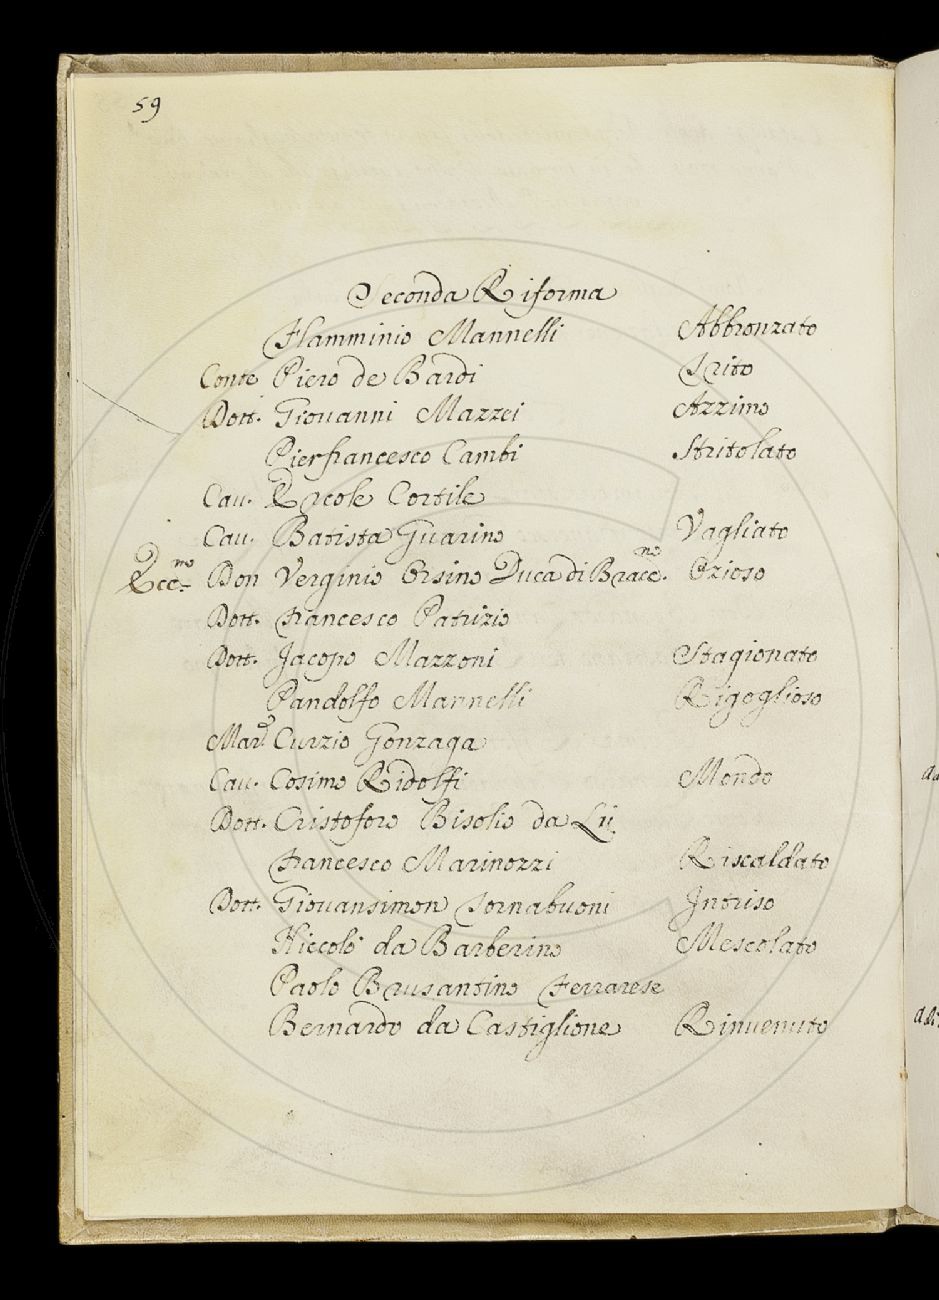 59
Seconda Riforma
Flamminio Mannelli Abbronzato
Conte Piero de Bardi Trito
Dott. Giouanni Mazzei Azzimo
Pierfrancesco Cambi Stritolato
Cau. Ercole Cortile
Cau. Batista Guarino Vagliato
Ecc.mo Don Verginio Orsino Duca di Bracc.no Ozioso
Dott. Francesco Patrizio
Dott. Jacopo Mazzoni Stagionato
Pandolfo Mannelli Rigoglioso
Mar.e Curzio Gonzaga
Cau. Cosimo Ridolfi Mondo
Dott. Cristoforo Bisolio da
Francesco Marinozzi Riscaldato
Dott. Giouansimon Tornabuoni Intriso
Niccolò da Barberino Mescolato
Paolo Brusantino Ferrarese
Bernardo da Castiglione Rinuenuto